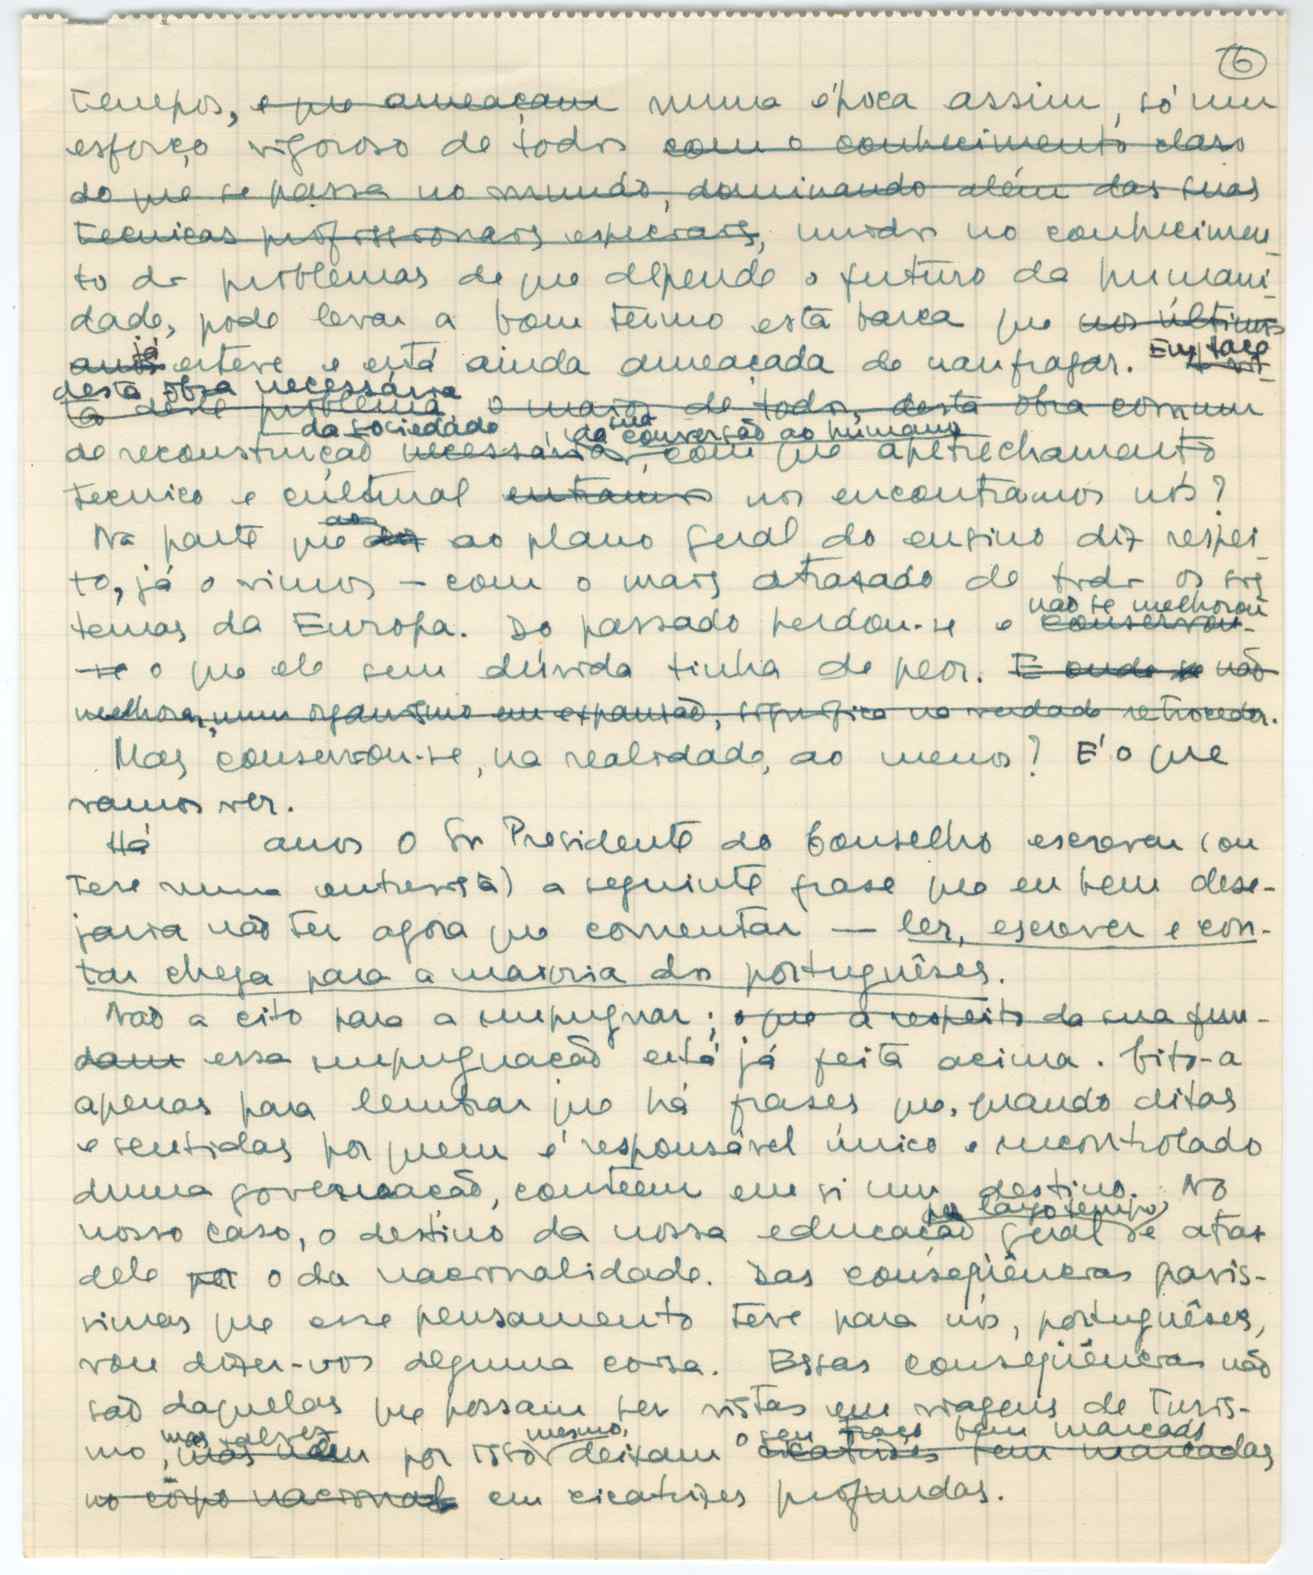 6
tempos, e que ameaçam numa época assim, só um
esforço vigoroso de todos com o conhecimento claro
do que se passa no mundo, dominando além das suas
tecnicas profissionais especiais, unidos no conhecimen-
to dos problemas de que depende o futuro da humani-
dade, pode levar a bom termo esta barca que nos últimos
já
anos esteve e está ainda ameaçada de naufragar. Em face
desta obra necessária
deste problema, o maior de todos, desta obra comum
da sociedade, da sua conversão ao humano
de reconstrução necessária, com que apetrechamento
tecnico e cultural entramos nos encontramos nós?
Na parte que ao plano geral do ensino diz respei-
to, já o vimos – com o mais atrasado de todos os sis
não se melhorou
temas da Europa. Do passado perdou-se e conservou-
-se o que ele sem dúvida tinha de peor. E onde se não
melhora, num organismo em expansão, significa na verdade retroceder.
Mas conservou-se, na realidade, ao menos? E' o que
vamos ver.
Há anos o Sr Presidente do Conselho escreveu (ou
teve numa entrevista) a seguinte frase que eu bem dese-
jaria não ter agora que comentar — ler, escrever e con-
tar chega para a maioria dos portuguêses.
Não a cito para a impugnar; o que a respeito da sua fun-
dam essa impugnação está já feita acima. Cito-a
apenas para lembrar que há frases que, quando ditas
e sentidas por quem é responsável único e incontrolado
duma governação, contêem em si um destino. No
por largo tempo
nosso caso, o destino da nossa educação geral e atraz
dele por o da nacionalidade. Das conseqüências gravis-
simas que esse pensamento teve para nós, portuguêses,
vou dizer-vos alguma coisa. Essas conseqüências não
são daquelas que possam ser vistas em viagens de turis-
mas talvez mesmo, o seu traço bem marcado
mo, mas nem por isso deixam cicatrizes bem marcadas
no corpo nacional em cicatrizes profundas.